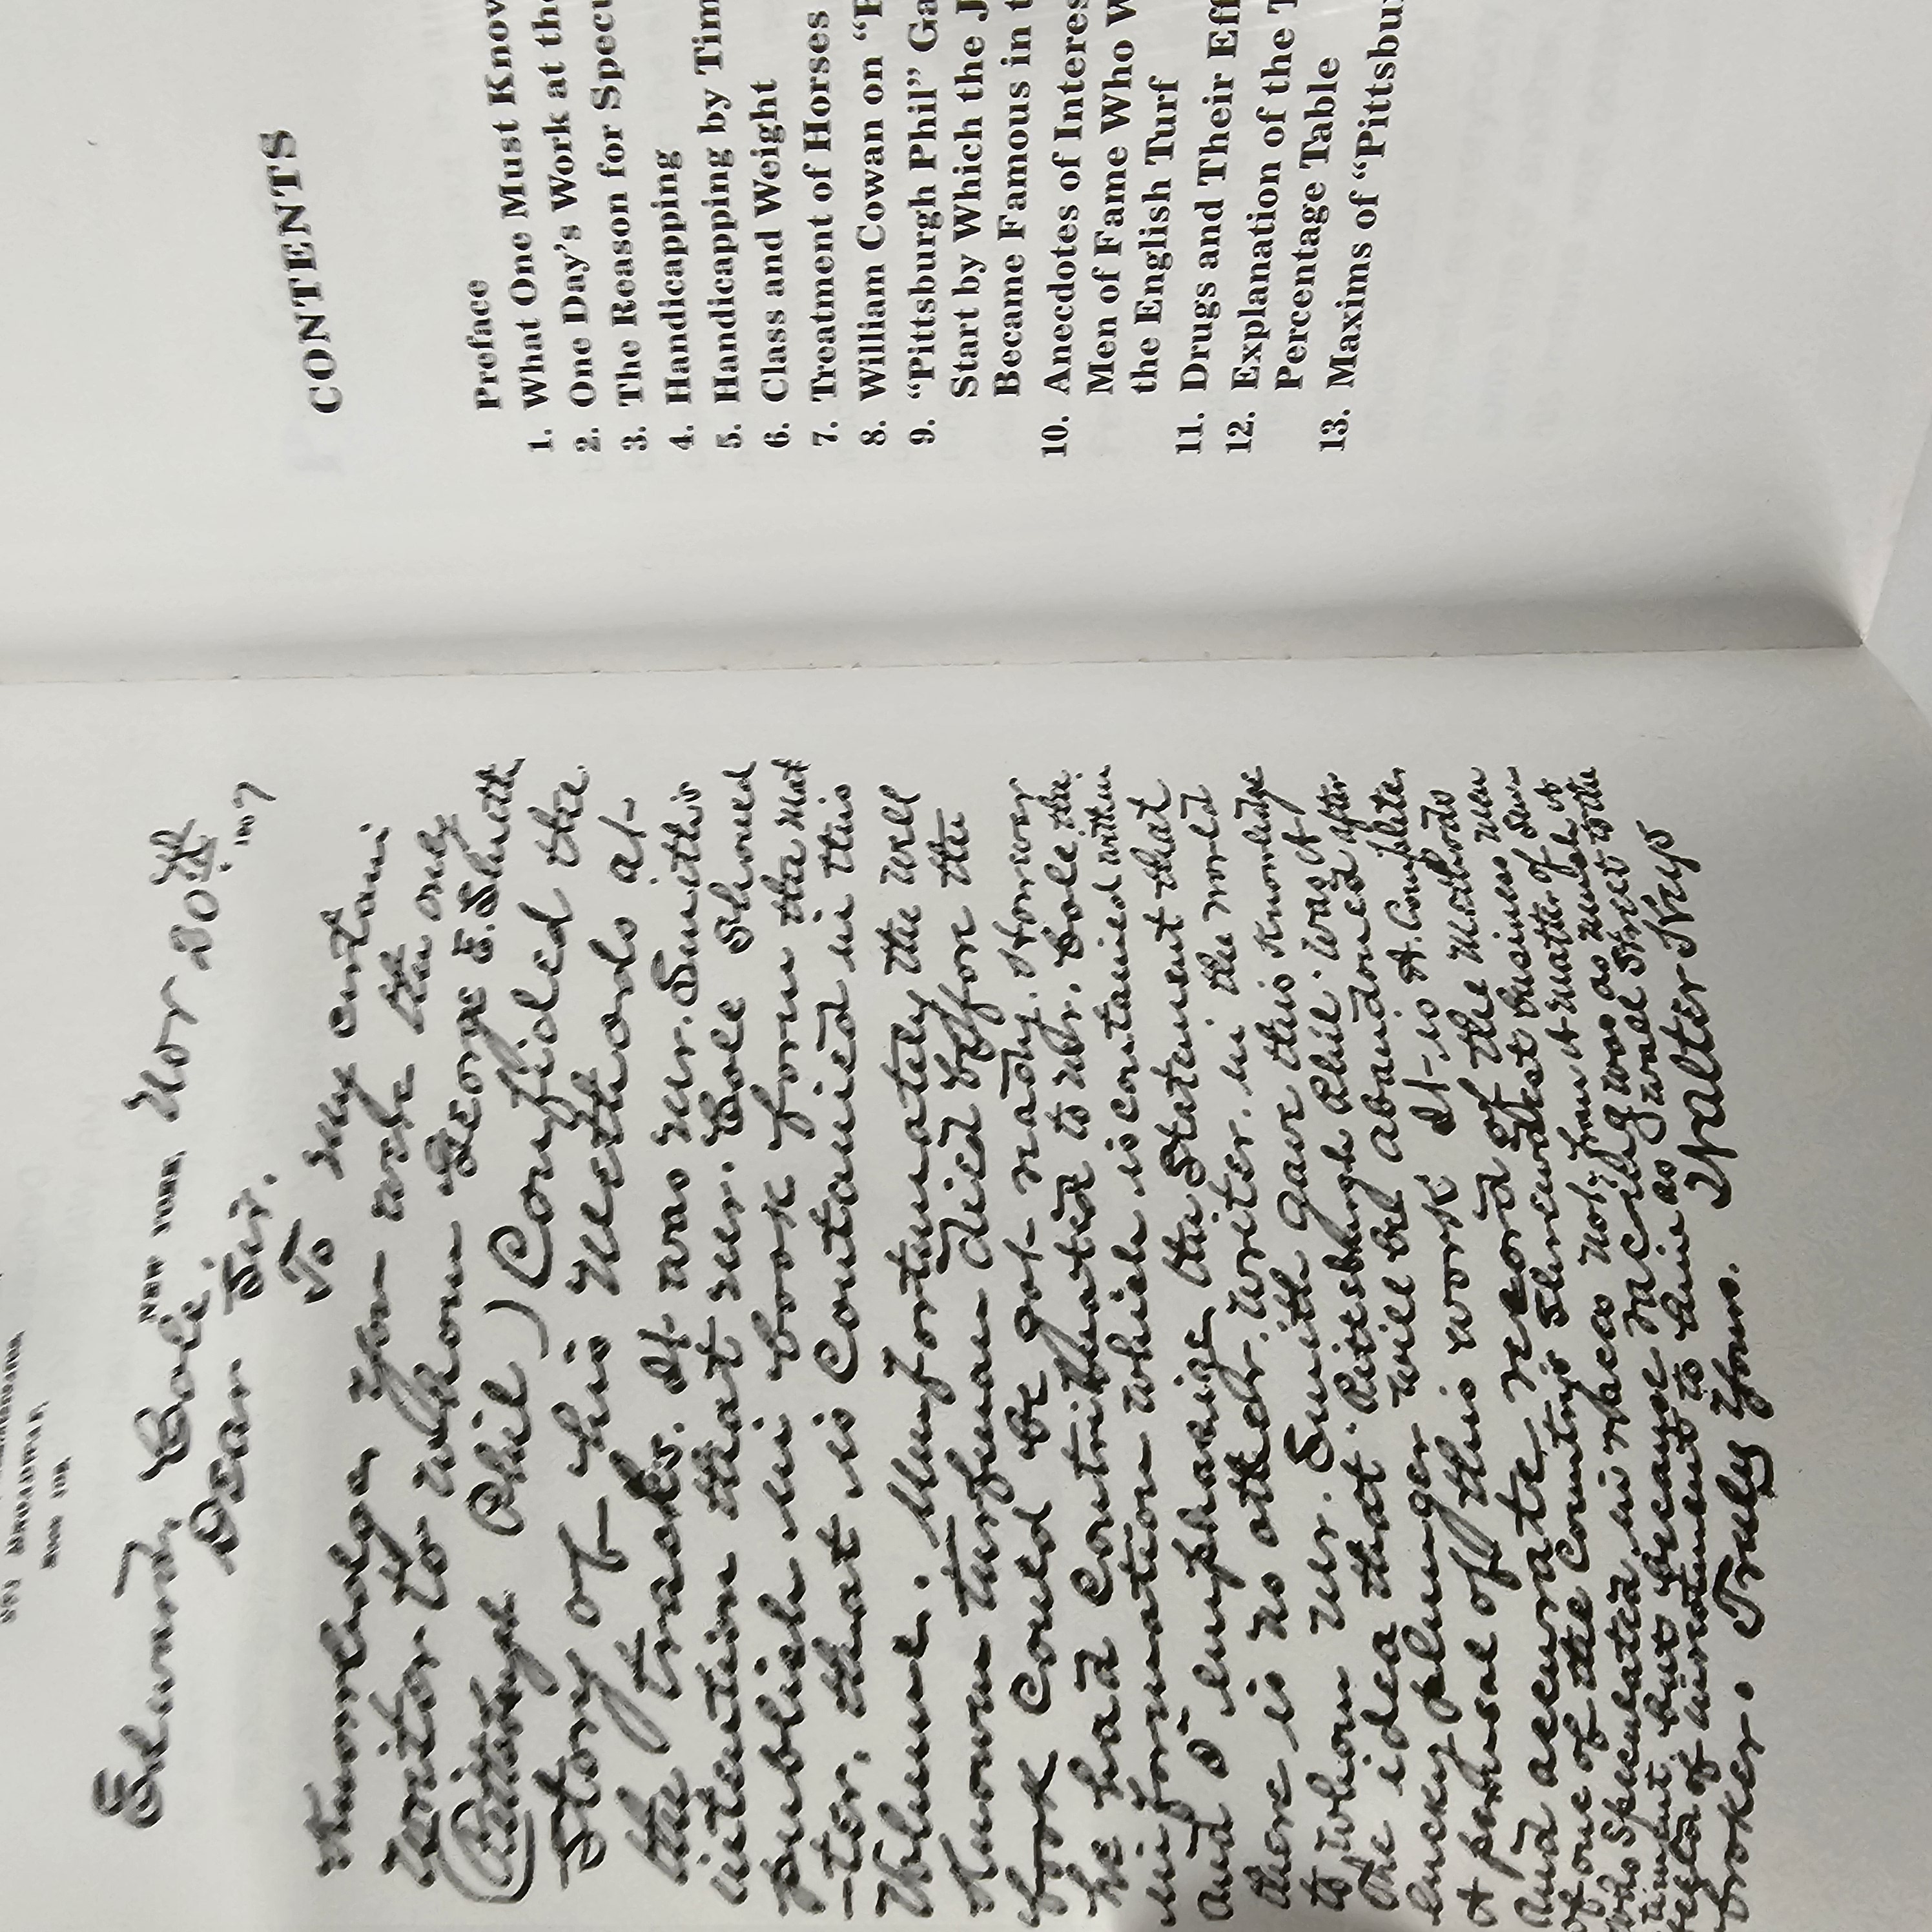 BROADWAY,
NEW YORK, Nov 20th
Edward, Cole,
1907
Dear Sir.
To My certain
Knowledge, you were the only
writer to whom George E. Smith
(Pittsburgh Phil) Confided the
Story of his Methods at
the tracks. It was Mr. Smith's
intention that Mr. Cole Should
publish in book form the mat
-ter, that is Contained in this
Volume. Unfortunately the well
Known turfman died before the
book could be got ready. However
he had contributed to Mr. Cole the
information which is contained within
and I emphasize the Statement that
there is no other. writer. in the world
to whom Mr. Smith gave this Knowledge
The idea that "Pittsburgh Phil" was A
lucky plunger will be abandoned after
A perusal of this work It is A. Complete,
and accurate record of the Methods
of one of the Country's Shrewdest business men
who Speculated in races not, from A matter of Sen-
timent. but because racing was as much A
of investment to him as Wall Street to the
broker. Truly Yours. Walter Keys
CONTENTS
Preface
1. What One Must Know
2. One Day's Work at the
3. The Reason for Specu
4. Handicapping
5. Handicapping by Tim
6. Class and Weight
7. Treatment of Horses
8. William Cowan on "P
9. "Pittsburgh Phil" Ga
Start by Which the J
Became Famous in t
10. Anecdotes of Interes
Men of Fame Who W
the English Turf
11. Drugs and Their Eff
12. Explanation of the T
Percentage Table
13. Maxims of "Pittsbu